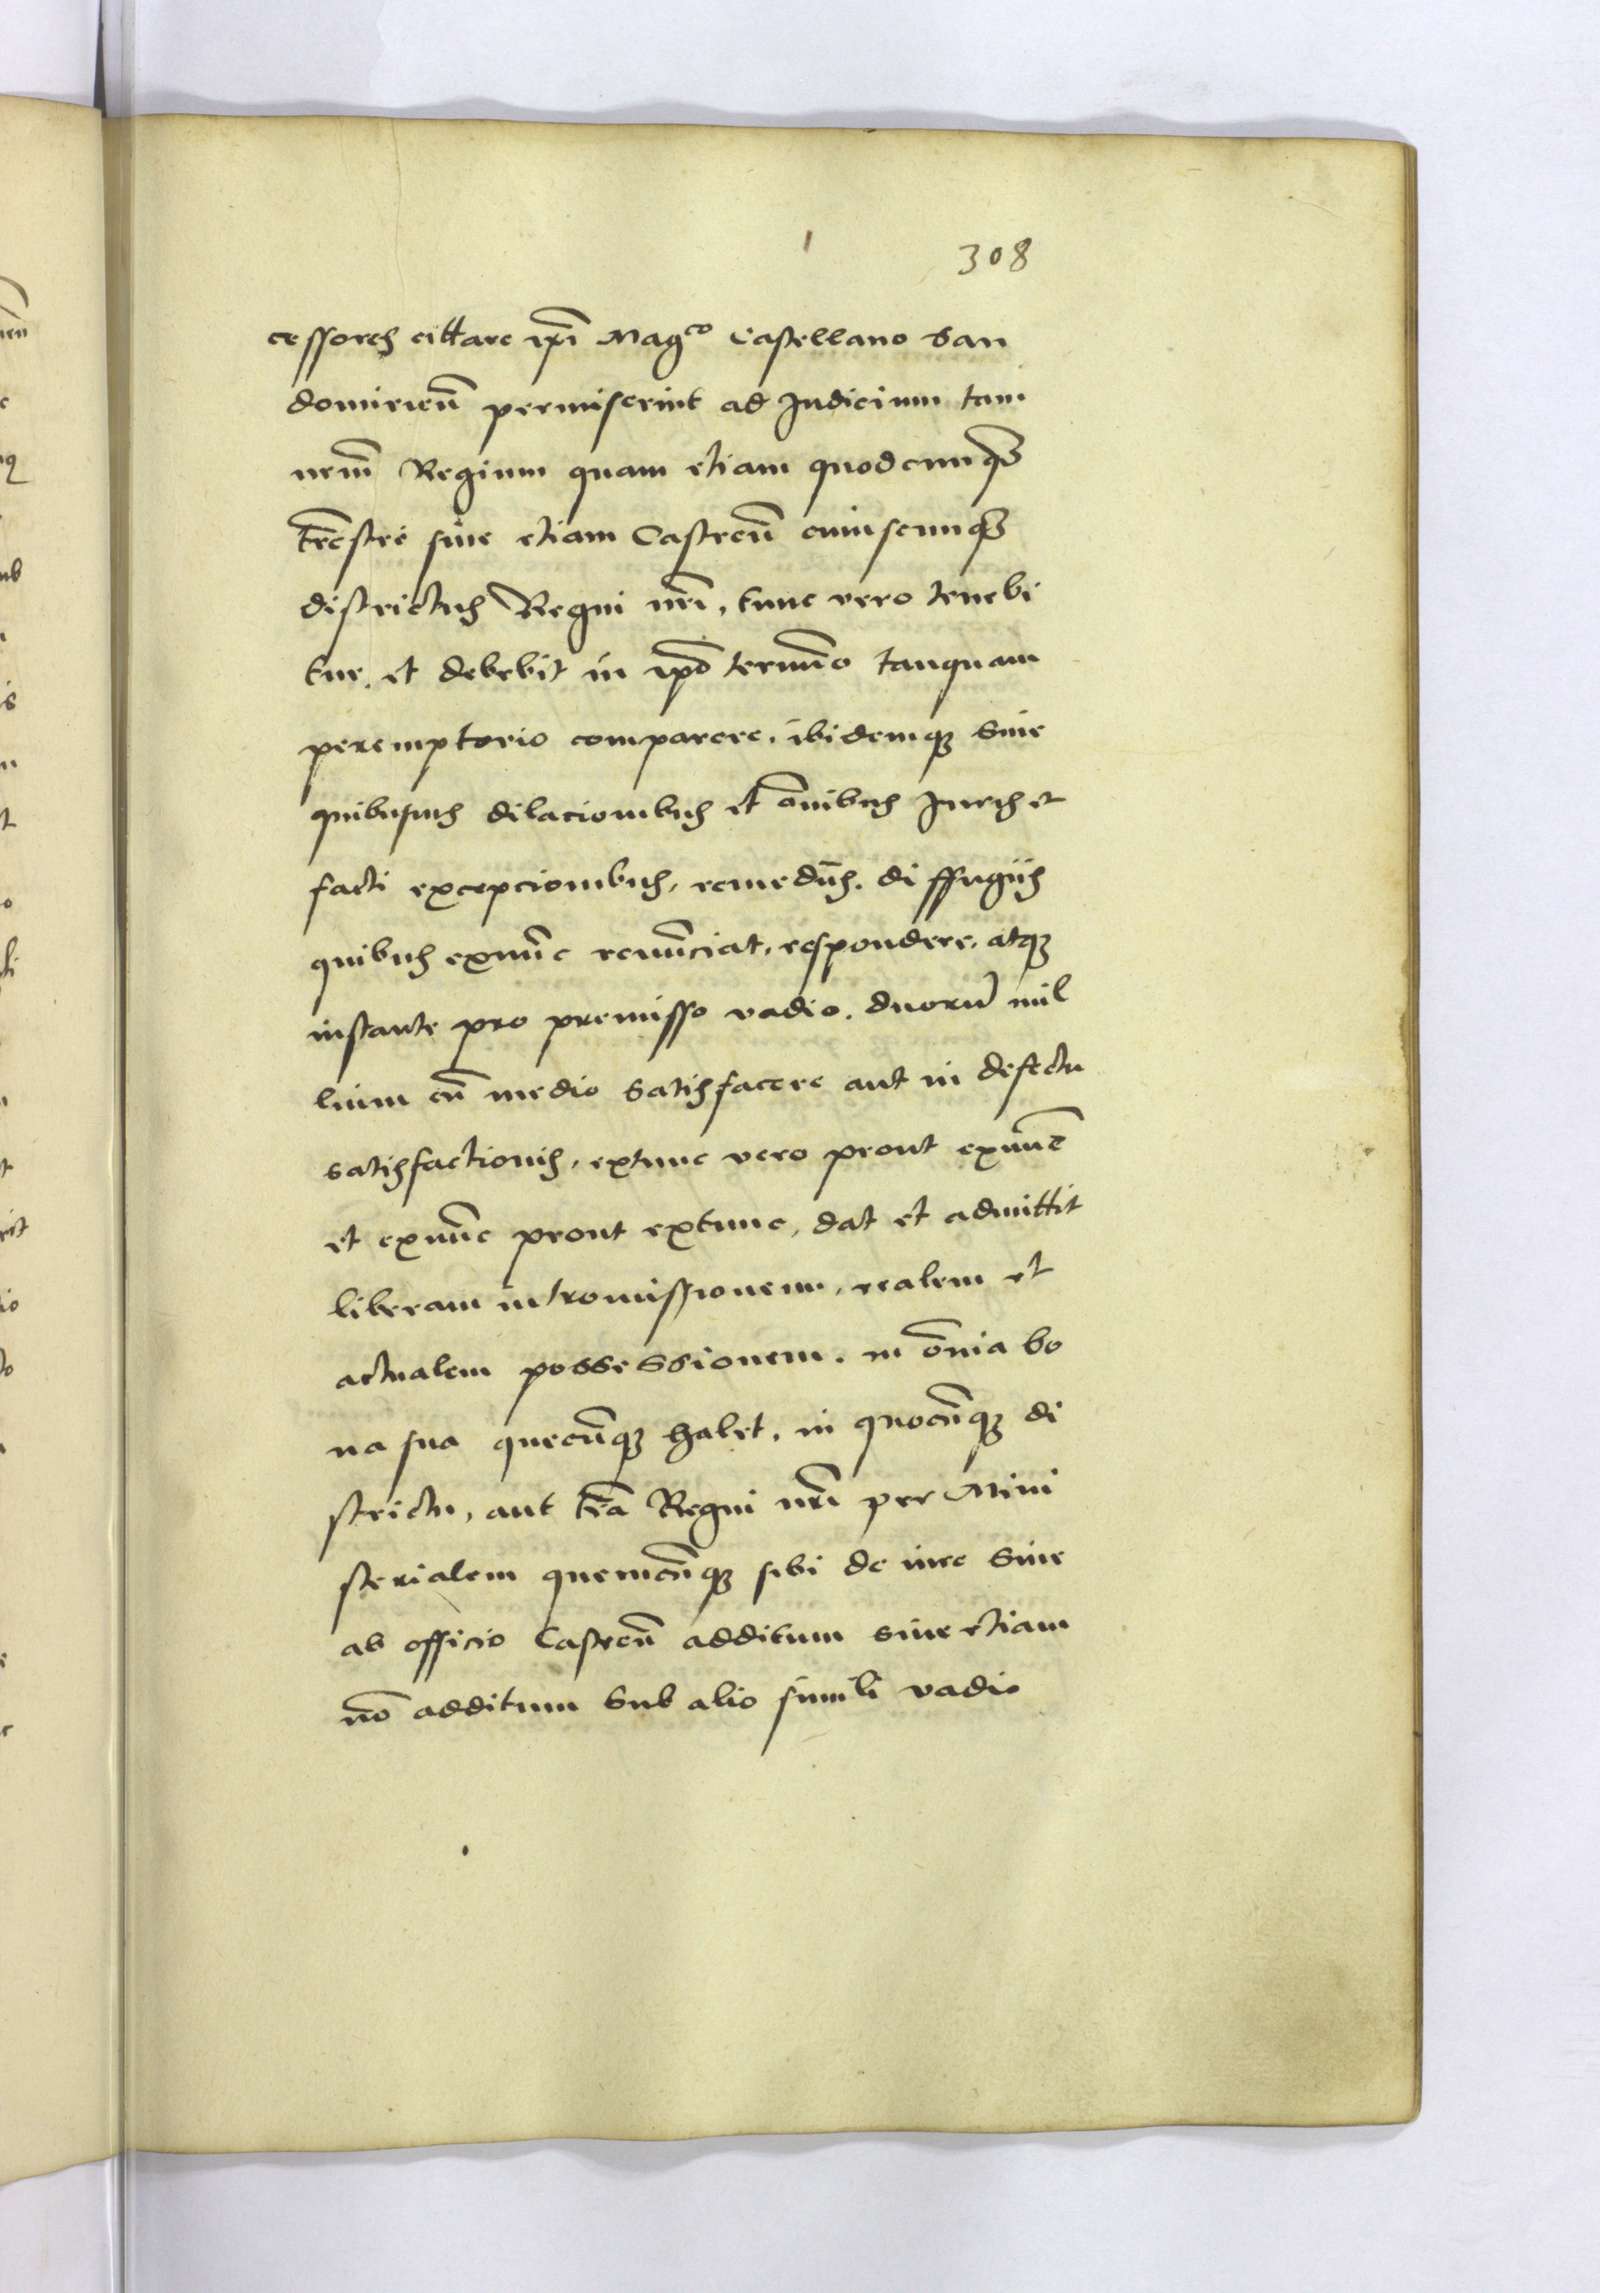 308
cessores cittare ipī Magco Castellano San
domirieñ permiserint ad Judicium tam
nrm̄ Regium quam etiam quodcunq3
trēstre siue etiam Castreñ cuiuscunq3
districtus Regni nrī, tunc vero tenebi
tur. et debebit in ipō termīo tanquam
peremptorio comparere. ibidemq3 sine
quibusuis dilacionibus et oīnibus Juris et
facti excepcionibus, remedīis. diffugiis
quibus exnūc renūnciat, respondere, atq3
instante pro premisso vadio. duorū mil
lium cū medio satisfacere aut in defectu
satisfactionis, extunc vero prout exnūc
et exnūc prout extunc, dat et admittit
liberam intromissionem, realem et
actualem possessionem. in ōnia bo
na sua quecūq3 habet, in quocūq3 di
strictu, aut trā Regni nrī per Mini
sterialem quemcūq3 sibi de iure siue
ab officio Castreñ additum siue etiam
nō additum Sub alio simili vadio